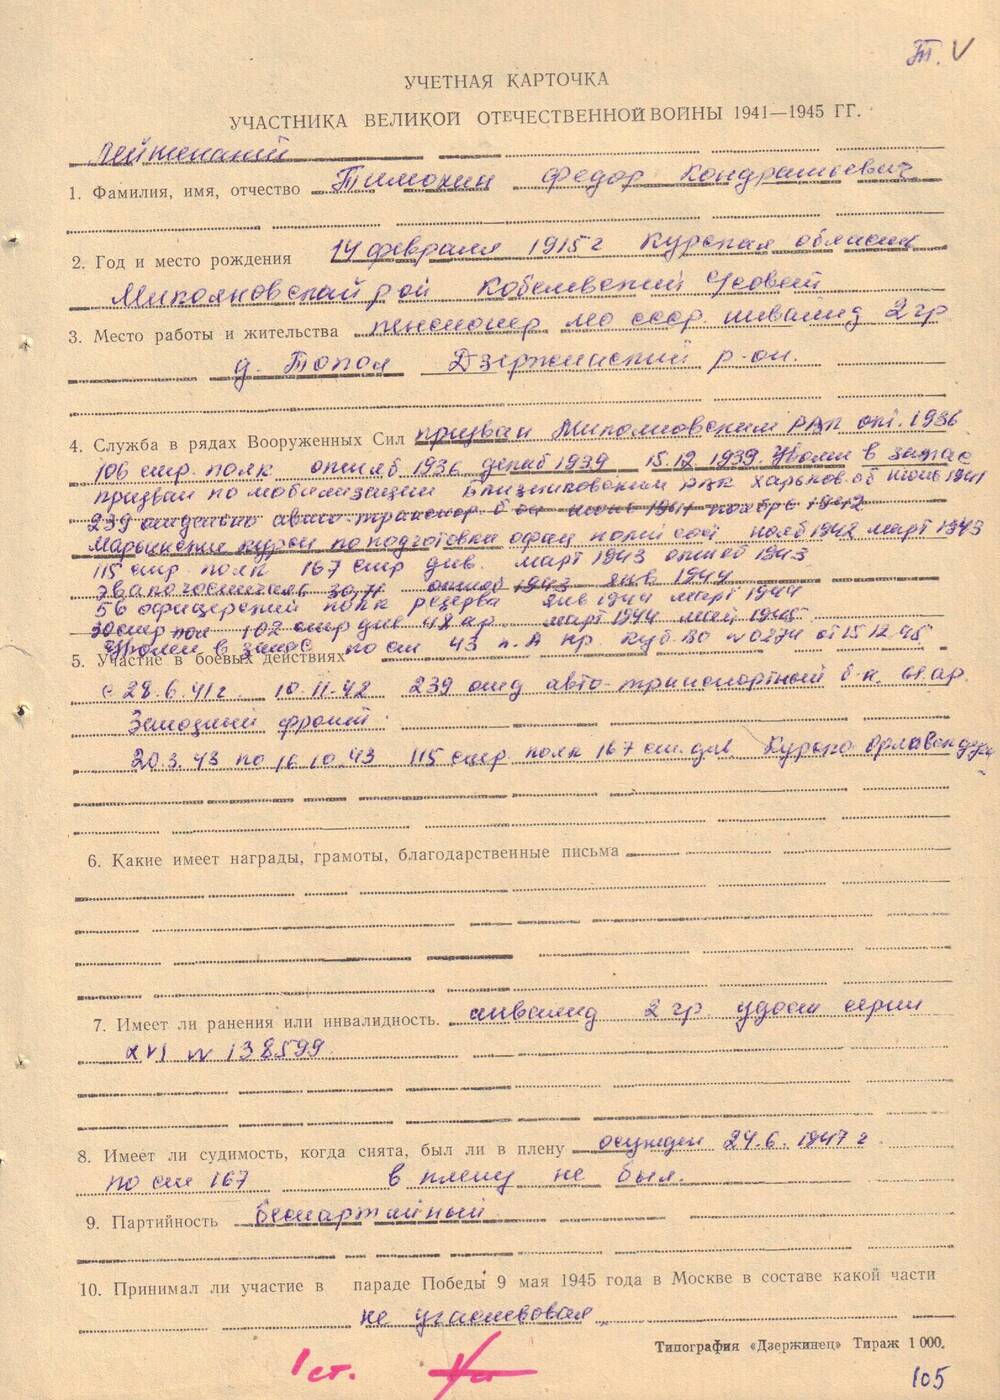 Т. V
УЧЕТНАЯ КАРТОЧКА
УЧАСТНИКА ВЕЛИКОЙ ОТЕЧЕСТВЕННОЙ ВОЙНЫ 1941—1945 ГГ.
Лейтенант
1. Фамилия, имя, отчество Тимохин Федор Кондратьевич
2. Год и место рождения 14 февраля 1915 г Курская область
Микояновский рой Кобелевский Усовет
3. Место работы и жительства пенсионер МО СССР. инвалид 2 гр
д. Топоа Дзержинский р-он.
4. Служба в рядах Вооруженных Сил призван Микояновским РВК окт. 1936
106 стр. полк октяб. 1936 декаб 1939 15.12.1939. Уволен в запас
призван по мобилизации Близнюковским РВК Харьков. об июнь 1941
239 отдельно авто-транспор б он июнь 1941 ноябрь 1942
Марьинские курсы по подготовки офиц ноябр 1942 март 1943
115 стр полк 167 стр див. март 1943 октяб 1943
Эвакогоспиталь октяб 1943 янв 1944
56 офицерский полк резерва янв 1944 март 1944
30 стр пол 102 стр див 48 ар. март 1944 май 1945
Уволен в запас по ст 43 п. А пр. Куб. ВО № 0274 от 15.12.45
5. Участие в боевых действиях
с 28.6.41 г. 10.11.42 239 отд авто-транспортный б-н.
Западный фронт.
20.3.43 по 16.10.43 115 стр. полк 167 ст. див Курско Орловск дуга
6. Какие имеет награды, грамоты, благодарственные письма
7. Имеет ли ранения или инвалидность. инвалид 2 гр. удост серии
XVI № 138599.
8. Имеет ли судимость, когда снята, был ли в плену осужден 24.6.1947 г.
по ст 167 в плену не был.
9. Партийность беспартийный
10. Принимал ли участие в параде Победы 9 мая 1945 года в Москве в составе какой части
не участвовал
Типография «Дзержинец» Тираж 1 000.
1 ст.
105